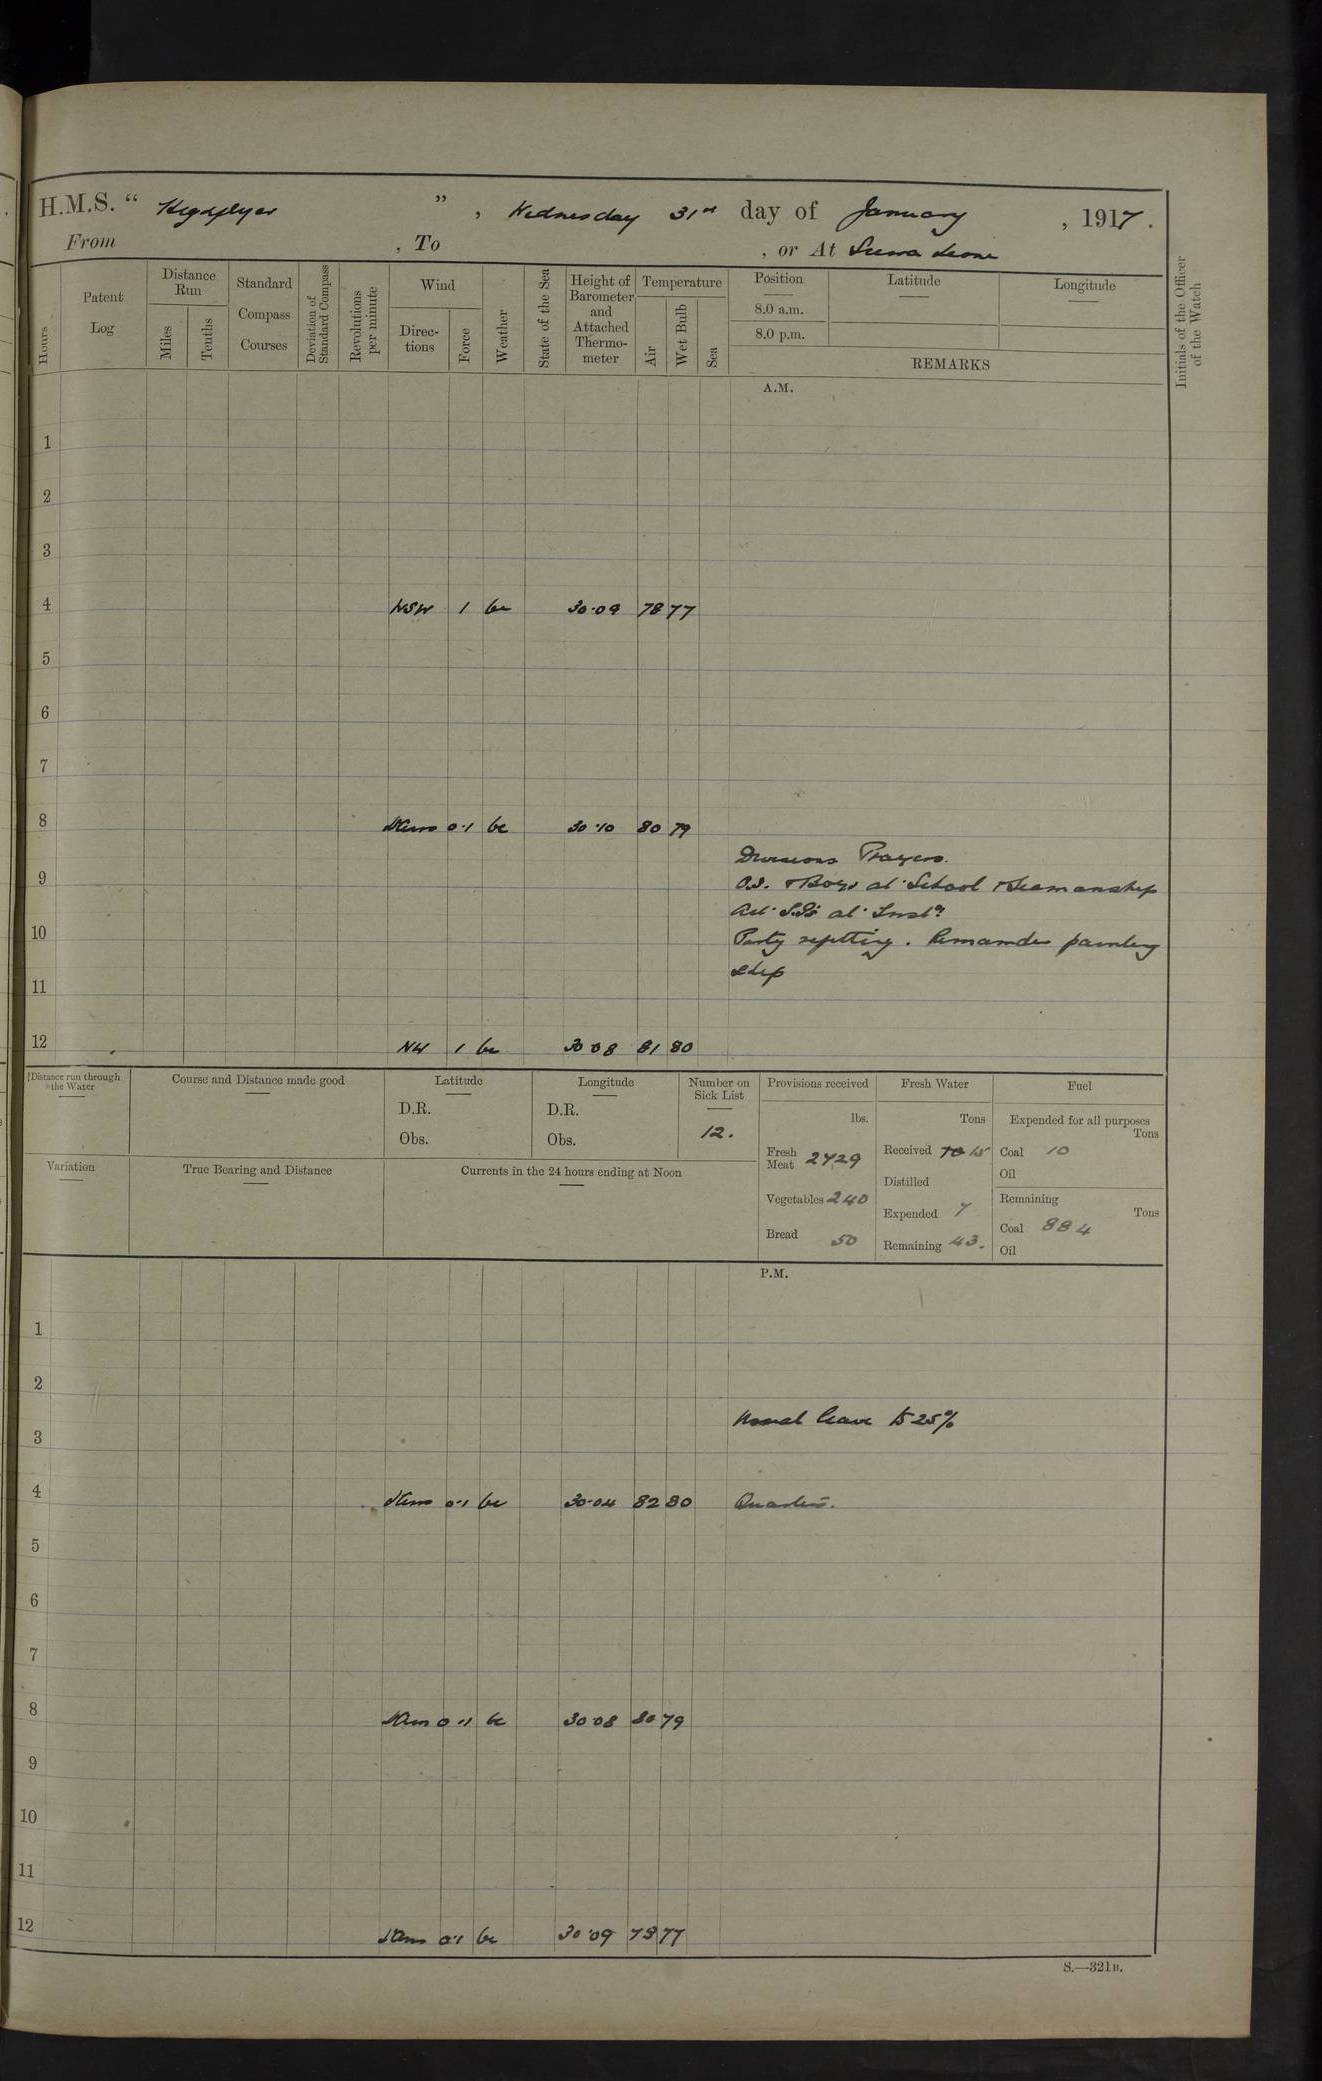 H.M.S. “ Highflyer ” , Wednesday 31st day of January , 1917 .
From , To , or At Sierra Leone
Hours
Patent Log
Distance Run
Miles
Tenths
Standard Compass Courses
Deviation of Standard Compass
Revolutions per minute
Wind
Direc- tions
Force
Weather
State of the Sea
Height of Barometer and Attached Thermo- meter
Temperature
Air
Wet Bulb
Sea
Position
8.0 a.m.
8.0 p.m.
Latitude
Longitude
REMARKS
Initials of the Officer of the Watch
A.M.
1
2
3
4 WSW 1 bc 30.09 78 77
5
6
7
8 0.1 bc 30.10 80 79
Divisions Prayers.
9
O.S. & Boys at School & Seamanship
Act. S.Ps at Instn
10
Party refitting. Remainder painting
ship
11
12 NW 1 bc 30 08 81 80
Distance run through the Water
Course and Distance made good
Latitude
D.R.
Obs.
Longitude
D.R.
Obs.
Number on Sick List
12.
Provisions received
lbs.
Fresh Meat 2429
Vegetables 240
Bread 50
Fresh Water
Tons
Received 15
Distilled
Expended 7
Remaining 43.
Fuel
Expended for all purposes
Tons
Coal 10
Oil
Remaining
Tons
Coal 884
Oil
Variation
True Bearing and Distance
Currents in the 24 hours ending at Noon
P.M.
1
2
Usual leave to 25%
3
4 0.1 bc 30.04 82 80 Quarters.
5
6
7
8 0.1 bc 30.08 80 79
9
10
11
12 0.1 bc 30.09 78 77
S.—321B.